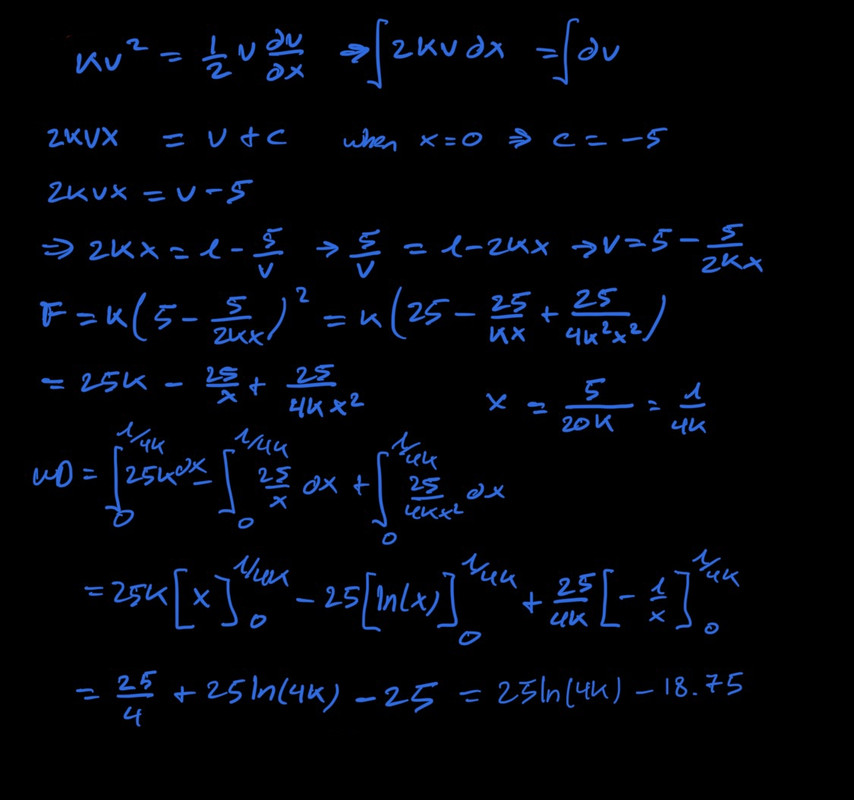 Kv² = 1/2 v ∂v/∂x ⇒ ∫ 2Kv ∂x = ∫ ∂v
2KVX = V + C when x=0 ⇒ C = -5
2KVX = V - 5
⇒ 2Kx = 1 - 5/V → 5/V = 1 - 2Kx → V = 5 - 5/2Kx
F = K(5 - 5/2Kx)² = K(25 - 25/Kx + 25/4K²x²)
= 25K - 25/x + 25/4Kx² x = 5/20K = 1/4K
WD = ∫₀^{1/4K} 25K ∂x - ∫₀^{1/4K} 25/x ∂x + ∫₀^{1/4K} 25/4Kx² ∂x
= 25K[x]₀^{1/4K} - 25[ln(x)]₀^{1/4K} + 25/4K[-1/x]₀^{1/4K}
= 25/4 + 25ln(4K) - 25 = 25ln(4K) - 18.75